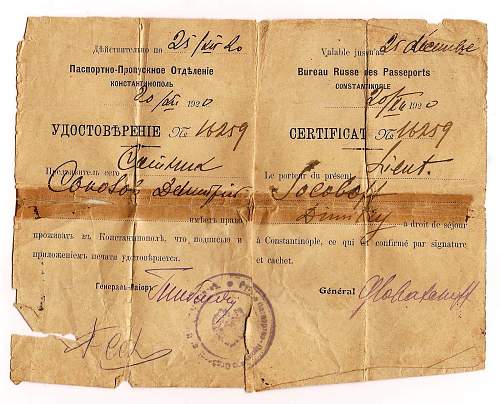 Дѣйствительно по 25/XII 20
Паспортно-Пропускное Отдѣленіе
КОНСТАНТИНОПОЛЬ
20/XII 1920
УДОСТОВѢРЕНІЕ № 16259
Предъявитель сего
Соколов
имѣетъ право
проживать въ Константинополѣ, что подписью и
приложеніемъ печати удостовѣряется.
Генералъ-Маіоръ
Valable jusqu'au 25 décembre
Bureau Russe des Passeports
CONSTANTINOPLE
20/XII 1920
CERTIFICAT № 16259
Le porteur du présent Lieut.
Dimitry
a droit de séjour
à Constantinople, ce qui confirmé par signature
et cachet.
Général